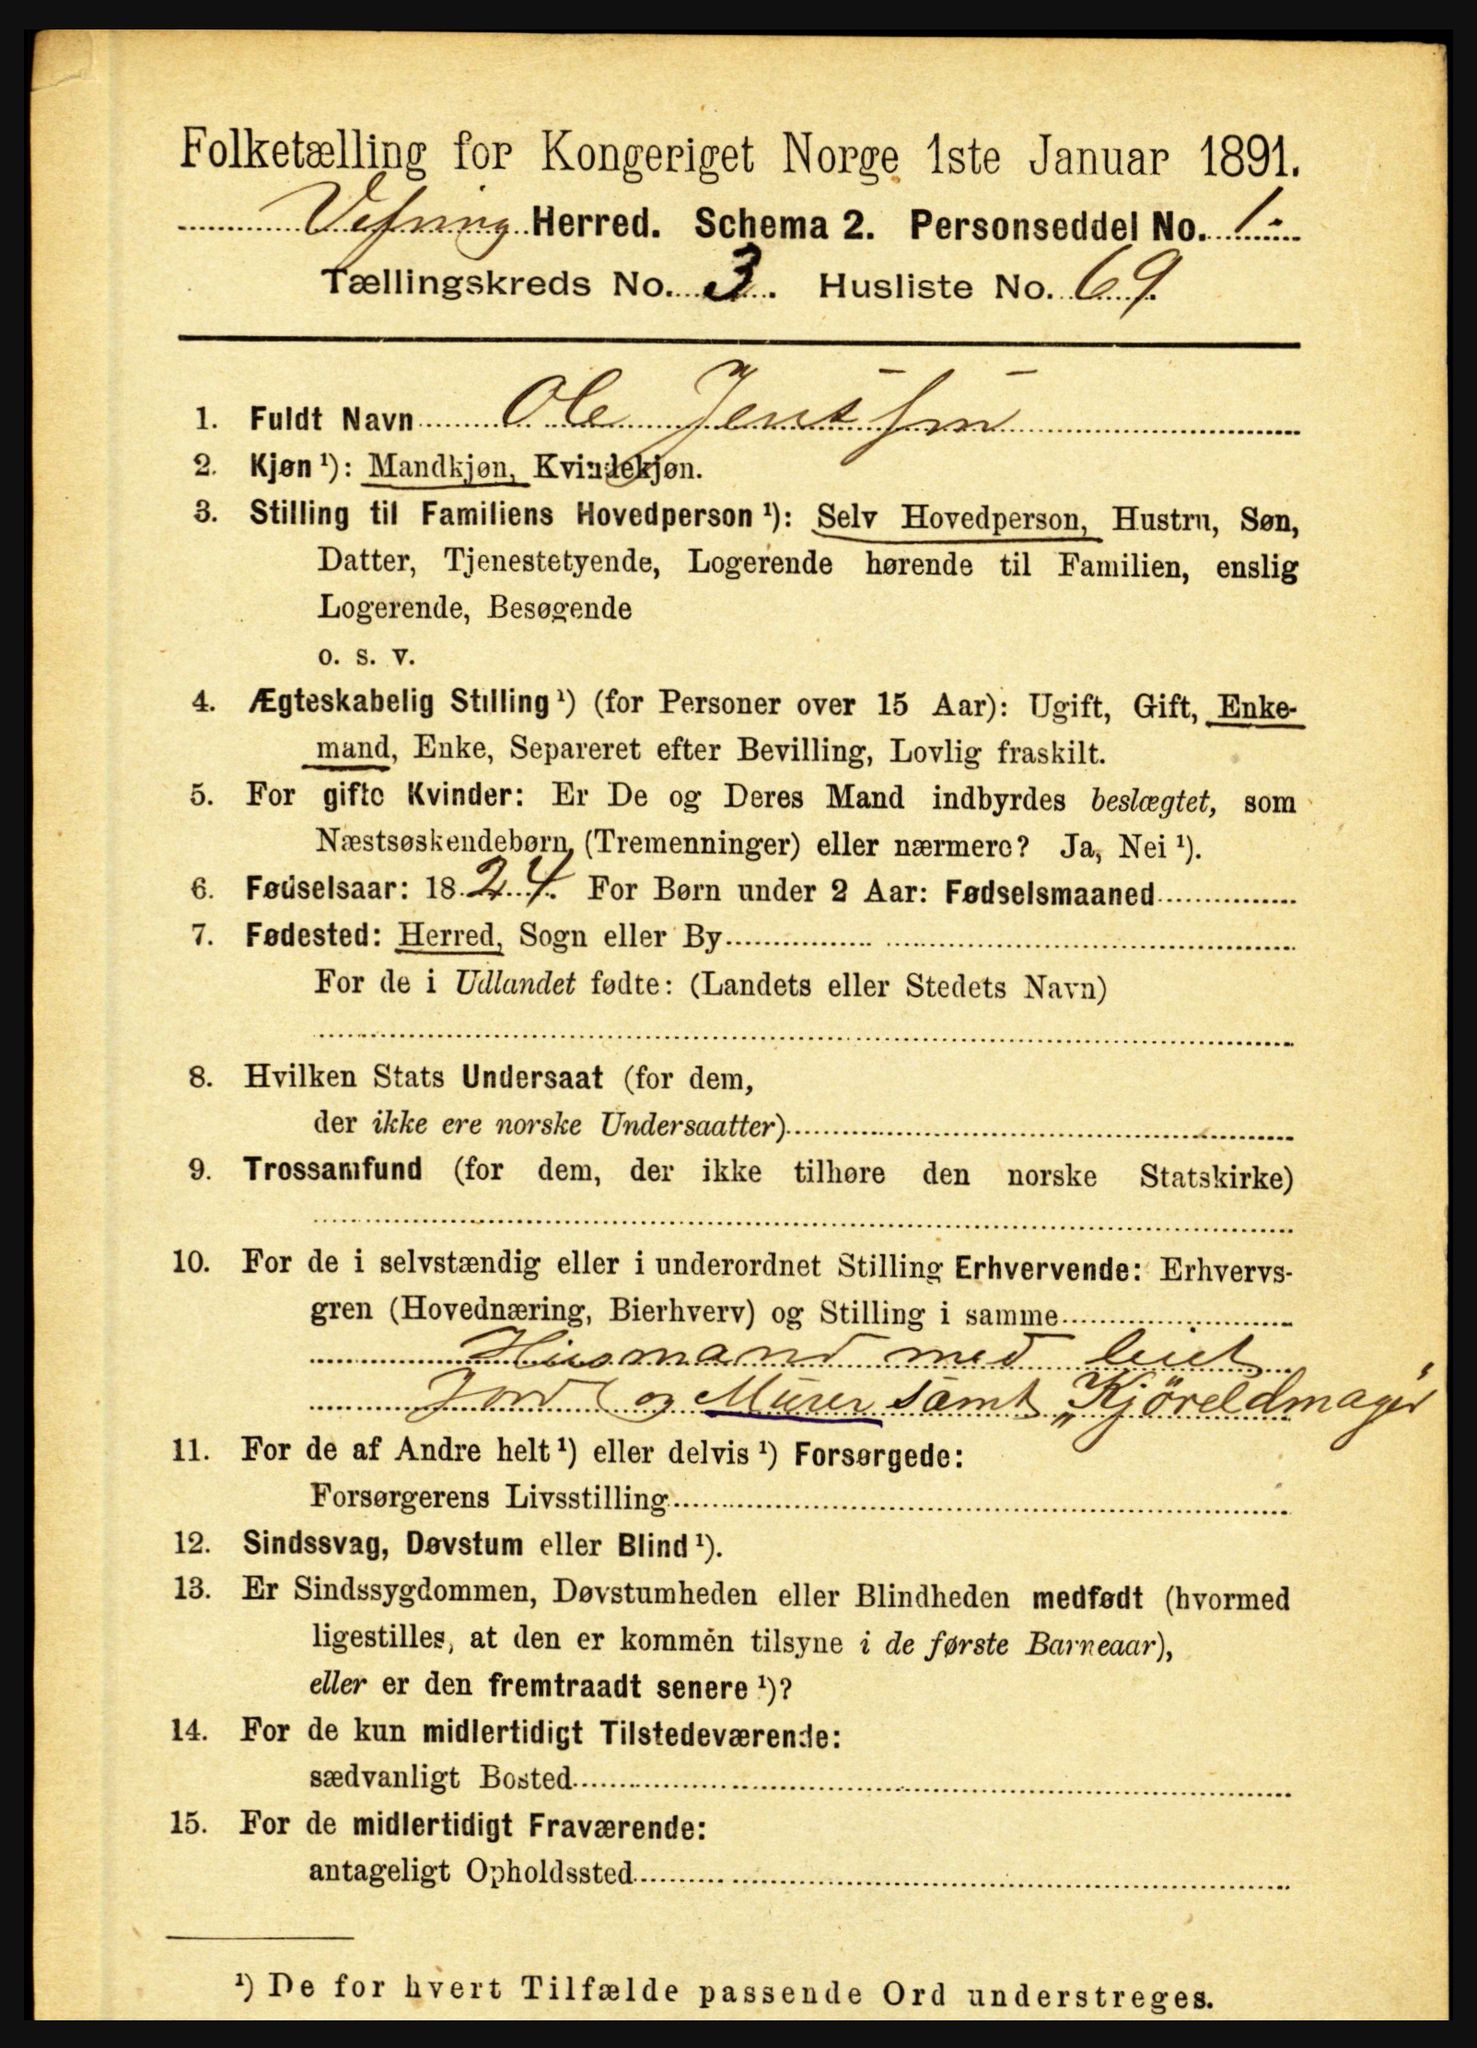 Folketælling for Kongeriget Norge 1ste Januar 1891.
Vefsning Herred. Schema 2. Personseddel No. 1.
Tællingskreds No. 3. Husliste No. 69.
1. Fuldt Navn Ole Jenssen
2. Kjøn ¹): Mandkjøn, Kvindekjøn.
3. Stilling til Familiens Hovedperson ¹): Selv Hovedperson, Hustru, Søn,
Datter, Tjenestetyende, Logerende hørende til Familien, enslig
Logerende, Besøgende
o. s. v.
4. Ægteskabelig Stilling ¹) (for Personer over 15 Aar): Ugift, Gift, Enke-
mand, Enke, Separeret efter Bevilling, Lovlig fraskilt.
5. For gifte Kvinder: Er De og Deres Mand indbyrdes beslægtet, som
Næstsøskendebørn (Tremenninger) eller nærmere? Ja, Nei ¹).
6. Fødselsaar: 1824. For Børn under 2 Aar: Fødselsmaaned
7. Fødested: Herred, Sogn eller By
For de i Udlandet fødte: (Landets eller Stedets Navn)
8. Hvilken Stats Undersaat (for dem,
der ikke ere norske Undersaatter)
9. Trossamfund (for dem, der ikke tilhøre den norske Statskirke)
10. For de i selvstændig eller i underordnet Stilling Erhvervende: Erhvervs-
gren (Hovednæring, Bierhverv) og Stilling i samme
Husmand med leiet
Jord og Murer samt "Kjöreldmager"
11. For de af Andre helt ¹) eller delvis ¹) Forsørgede:
Forsørgerens Livsstilling
12. Sindssvag, Døvstum eller Blind ¹).
13. Er Sindssygdommen, Døvstumheden eller Blindheden medfødt (hvormed
ligestilles, at den er kommén tilsyne i de første Barneaar),
eller er den fremtraadt senere ¹)?
14. For de kun midlertidigt Tilstedeværende:
sædvanligt Bosted
15. For de midlertidigt Fraværende:
antageligt Opholdssted
¹) De for hvert Tilfælde passende Ord understreges.